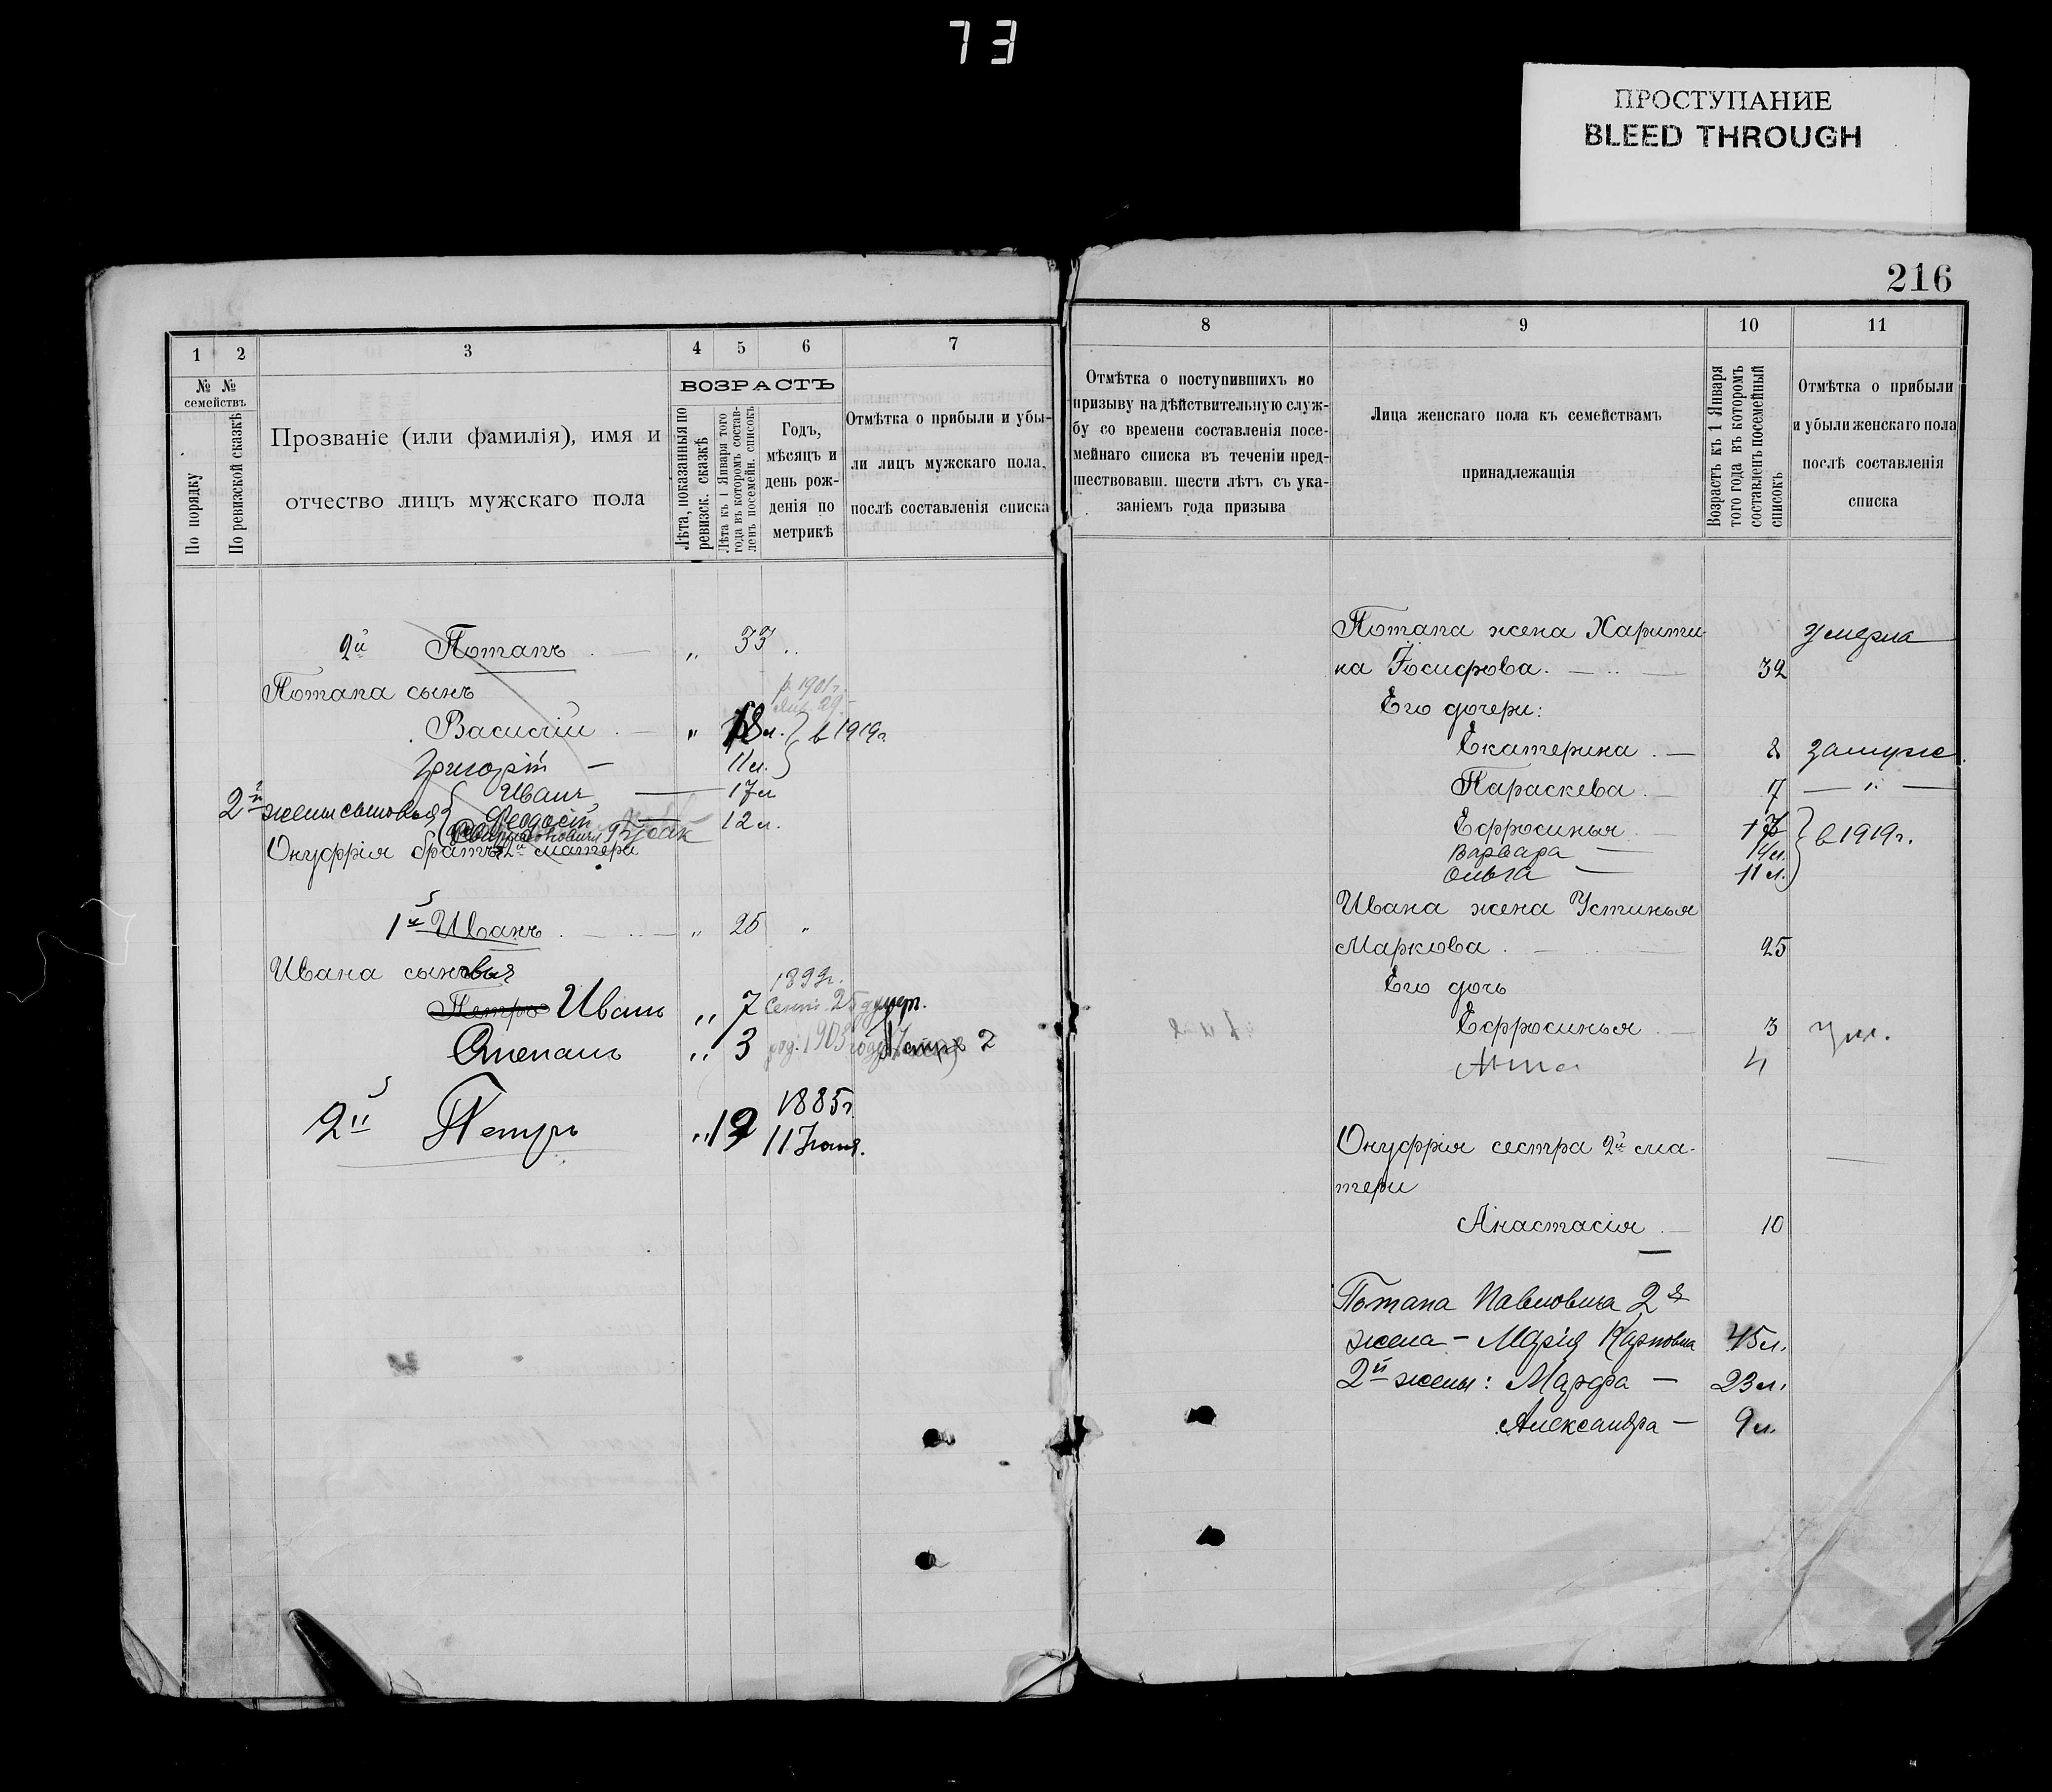 73
ПРОСТУПАНИЕ
BLEED THROUGH
216
1 2 3 4 5 6 7
№ № семействъ
По порядку
По ревизской сказкѣ
Прозваніе (или фамилія), имя и
отчество лицъ мужскаго пола
ВОЗРАСТЪ
Лѣта, показанныя по
ревизск. сказкѣ
Лѣта къ 1 Января того
года въ которомъ состав-
ленъ посемейн. списокъ
Годъ,
мѣсяцъ и
день рож-
денія по
метрикѣ
Отмѣтка о прибыли и убы-
ли лицъ мужскаго пола,
послѣ составленія списка
2й Потапъ " 33
Потапа сынъ
р. 1901 г.
29
Василій " 18 л. } в 1919 г.
Григорій — 11 л.
2й жены сыновья { Иванъ — 17 л.
Феодосій — 12 л.
Онуфрія братья 2й матери
1й Иванъ " 25 "
Ивана сыновья
1899 г.
Петръ Иванъ " 7 Сент. 25 умер.
Степанъ " 3 род. 1903 Петръ 2
2й Петръ " 19 1885 г.
11 Іюня.
8 9 10 11
Отмѣтка о поступившихъ по
призыву на дѣйствительную служ-
бу со времени составленія посе-
мейнаго списка въ теченіи пред-
шествовавш. шести лѣтъ съ ука-
заніемъ года призыва
Лица женскаго пола къ семействамъ
принадлежащія
Возрастъ къ 1 Января
того года въ которомъ
составленъ посемейный
списокъ
Отмѣтка о прибыли
и убыли женскаго пола
послѣ составленія
списка
Потапа жена Харити- умерла
на Іосифова. 32
Его дочери:
Екатерина 8 замуж.
Параскева 7 — " —
Ефросинья 17 } в 1919 г.
Варвара — 14 л.
Ольга — 11 л.
Ивана жена Устинья
Маркова 25
Его дочь
Ефросинья 3 ум.
Анна 4
Онуфрія сестра 2й ма-
тери
Анастасія 10
Потапа Павловича 2я
жена — Марія Карповна 45 л.
2й жены: Марфа — 23 л.
Александра — 9 л.